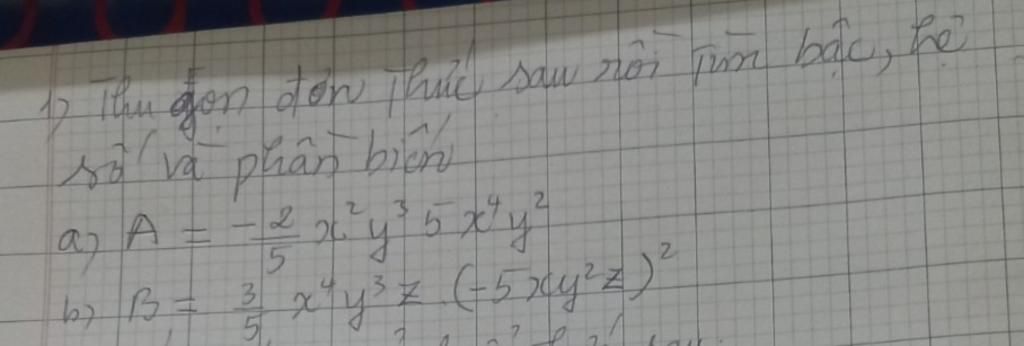 1) Thu gọn đơn thức sau rồi tìm bậc, hệ
số và phần biến
a) A = -2/5 x²y³ 5x⁴y²
b) B = 3/5 x⁴y³z (-5xy²z)²